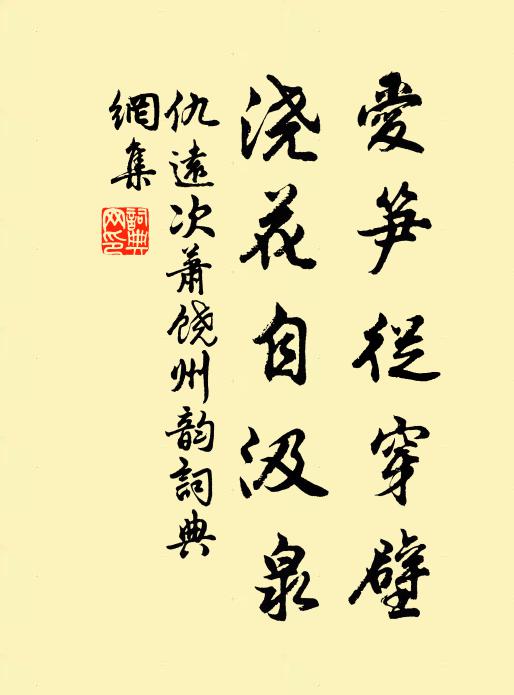 愛笋從穿壁
浇花自汲泉
仇遠次萧饶州韵詞典
網集
詞典
网印